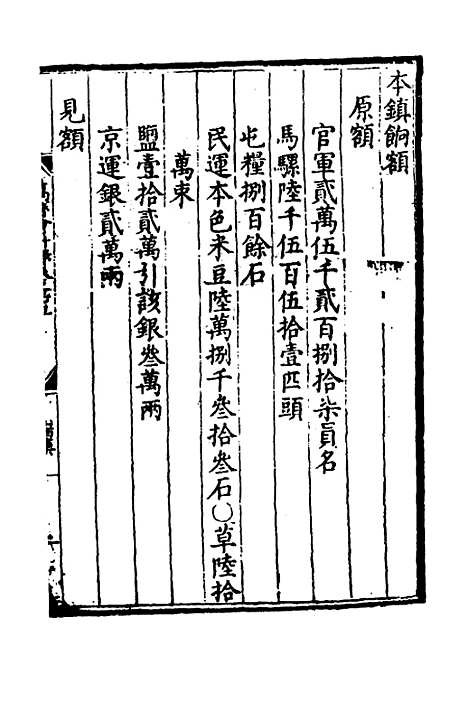 本鎮餉額
原額
官軍貳萬伍千貳百捌拾柒員名
馬騾陸千伍百伍拾壹匹頭
屯糧捌百餘石
民運本色米豆陸萬捌千叁拾叁石○草陸拾
萬束
鹽壹拾貳萬引該銀叁萬兩
京運銀貳萬兩
見額